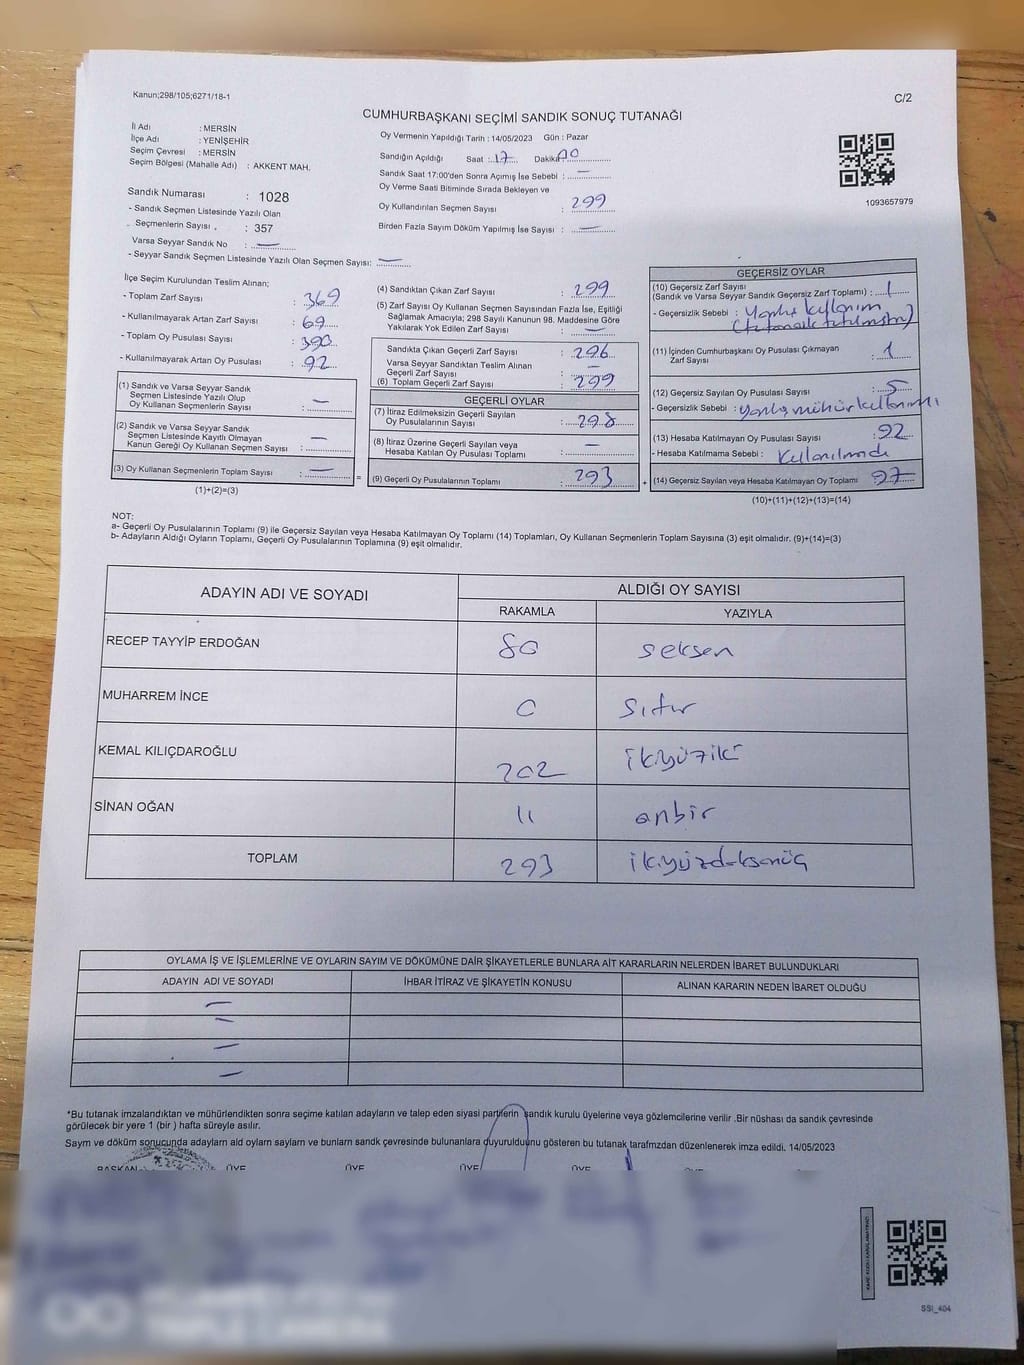 Kanun;298/105;6271/18-1
C/2
CUMHURBAŞKANI SEÇİMİ SANDIK SONUÇ TUTANAĞI
İl Adı : MERSİN
İlçe Adı : YENİŞEHİR
Seçim Çevresi : MERSİN
Seçim Bölgesi (Mahalle Adı) : AKKENT MAH.
Sandık Numarası : 1028
- Sandık Seçmen Listesinde Yazılı Olan
Seçmenlerin Sayısı : 357
Varsa Seyyar Sandık No : —
- Seyyar Sandık Seçmen Listesinde Yazılı Olan Seçmen Sayısı: —
Oy Vermenin Yapıldığı Tarih : 14/05/2023 Gün : Pazar
Sandığın Açıldığı Saat : 17 Dakika
Sandık Saat 17:00'den Sonra Açımış İse Sebebi : —
Oy Verme Saati Bitiminde Sırada Bekleyen ve
Oy Kullandırılan Seçmen Sayısı : 299
Birden Fazla Sayım Döküm Yapılmış İse Sayısı : —
1093657979
İlçe Seçim Kurulundan Teslim Alınan;
- Toplam Zarf Sayısı : 369
- Kullanılmayarak Artan Zarf Sayısı : 69
- Toplam Oy Pusulası Sayısı : 390
- Kullanılmayarak Artan Oy Pusulası : 92
(1) Sandık ve Varsa Seyyar Sandık
Seçmen Listesinde Yazılı Olup
Oy Kullanan Seçmenlerin Sayısı : —
(2) Sandık ve Varsa Seyyar Sandık
Seçmen Listesinde Kayıtlı Olmayan
Kanun Gereği Oy Kullanan Seçmen Sayısı : —
(3) Oy Kullanan Seçmenlerin Toplam Sayısı : —
(1)+(2)=(3)
(4) Sandıktan Çıkan Zarf Sayısı : 299
(5) Zarf Sayısı Oy Kullanan Seçmen Sayısından Fazla İse, Eşitliği
Sağlamak Amacıyla; 298 Sayılı Kanunun 98. Maddesine Göre
Yakılarak Yok Edilen Zarf Sayısı : —
Sandıkta Çıkan Geçerli Zarf Sayısı : 296
Varsa Seyyar Sandıktan Teslim Alınan
Geçerli Zarf Sayısı : —
(6) Toplam Geçerli Zarf Sayısı : 299
GEÇERLİ OYLAR
(7) İtiraz Edilmeksizin Geçerli Sayılan
Oy Pusulalarının Sayısı : 298
(8) İtiraz Üzerine Geçerli Sayılan veya
Hesaba Katılan Oy Pusulası Toplamı : —
(9) Geçerli Oy Pusulalarının Toplamı : 293
GEÇERSİZ OYLAR
(10) Geçersiz Zarf Sayısı
(Sandık ve Varsa Seyyar Sandık Geçersiz Zarf Toplamı) : 1
- Geçersizlik Sebebi : Yanlış kullanım
(tutanak tutulmuştur)
(11) İçinden Cumhurbaşkanı Oy Pusulası Çıkmayan
Zarf Sayısı : 1
(12) Geçersiz Sayılan Oy Pusulası Sayısı : 5
- Geçersizlik Sebebi : yanlış mühür kullanımı
(13) Hesaba Katılmayan Oy Pusulası Sayısı : 92
- Hesaba Katılmama Sebebi : Kullanılmadı
(14) Geçersiz Sayılan veya Hesaba Katılmayan Oy Toplamı : 97
(10)+(11)+(12)+(13)=(14)
NOT:
a- Geçerli Oy Pusulalarının Toplamı (9) ile Geçersiz Sayılan veya Hesaba Katılmayan Oy Toplamı (14) Toplamları, Oy Kullanan Seçmenlerin Toplam Sayısına (3) eşit olmalıdır. (9)+(14)=(3)
b- Adayların Aldığı Oyların Toplamı, Geçerli Oy Pusulalarının Toplamına (9) eşit olmalıdır.
ADAYIN ADI VE SOYADI
ALDIĞI OY SAYISI
RAKAMLA YAZIYLA
RECEP TAYYİP ERDOĞAN 80 seksen
MUHARREM İNCE 0 sıfır
KEMAL KILIÇDAROĞLU 202 ikiyüziki
SİNAN OĞAN 11 onbir
TOPLAM 293 ikiyüzdoksanüç
OYLAMA İŞ VE İŞLEMLERİNE VE OYLARIN SAYIM VE DÖKÜMÜNE DAİR ŞİKAYETLERLE BUNLARA AİT KARARLARIN NELERDEN İBARET BULUNDUKLARI
ADAYIN ADI VE SOYADI İHBAR İTİRAZ VE ŞİKAYETİN KONUSU ALINAN KARARIN NEDEN İBARET OLDUĞU
—
—
—
—
*Bu tutanak imzalandıktan ve mühürlendikten sonra seçime katılan adayların ve talep eden siyasi partilerin sandık kurulu üyelerine veya gözlemcilerine verilir .Bir nüshası da sandık çevresinde
görülecek bir yere 1 (bir ) hafta süreyle asılır.
Sayım ve döküm sonucunda adayların ald oyların sayların ve bunların sandık çevresinde bulunanlara duyurulduunu gösteren bu tutanak tarafmzdan düzenlenerek imza edildi. 14/05/2023
BAŞKAN ÜYE ÜYE ÜYE ÜYE ÜYE
SSI_404